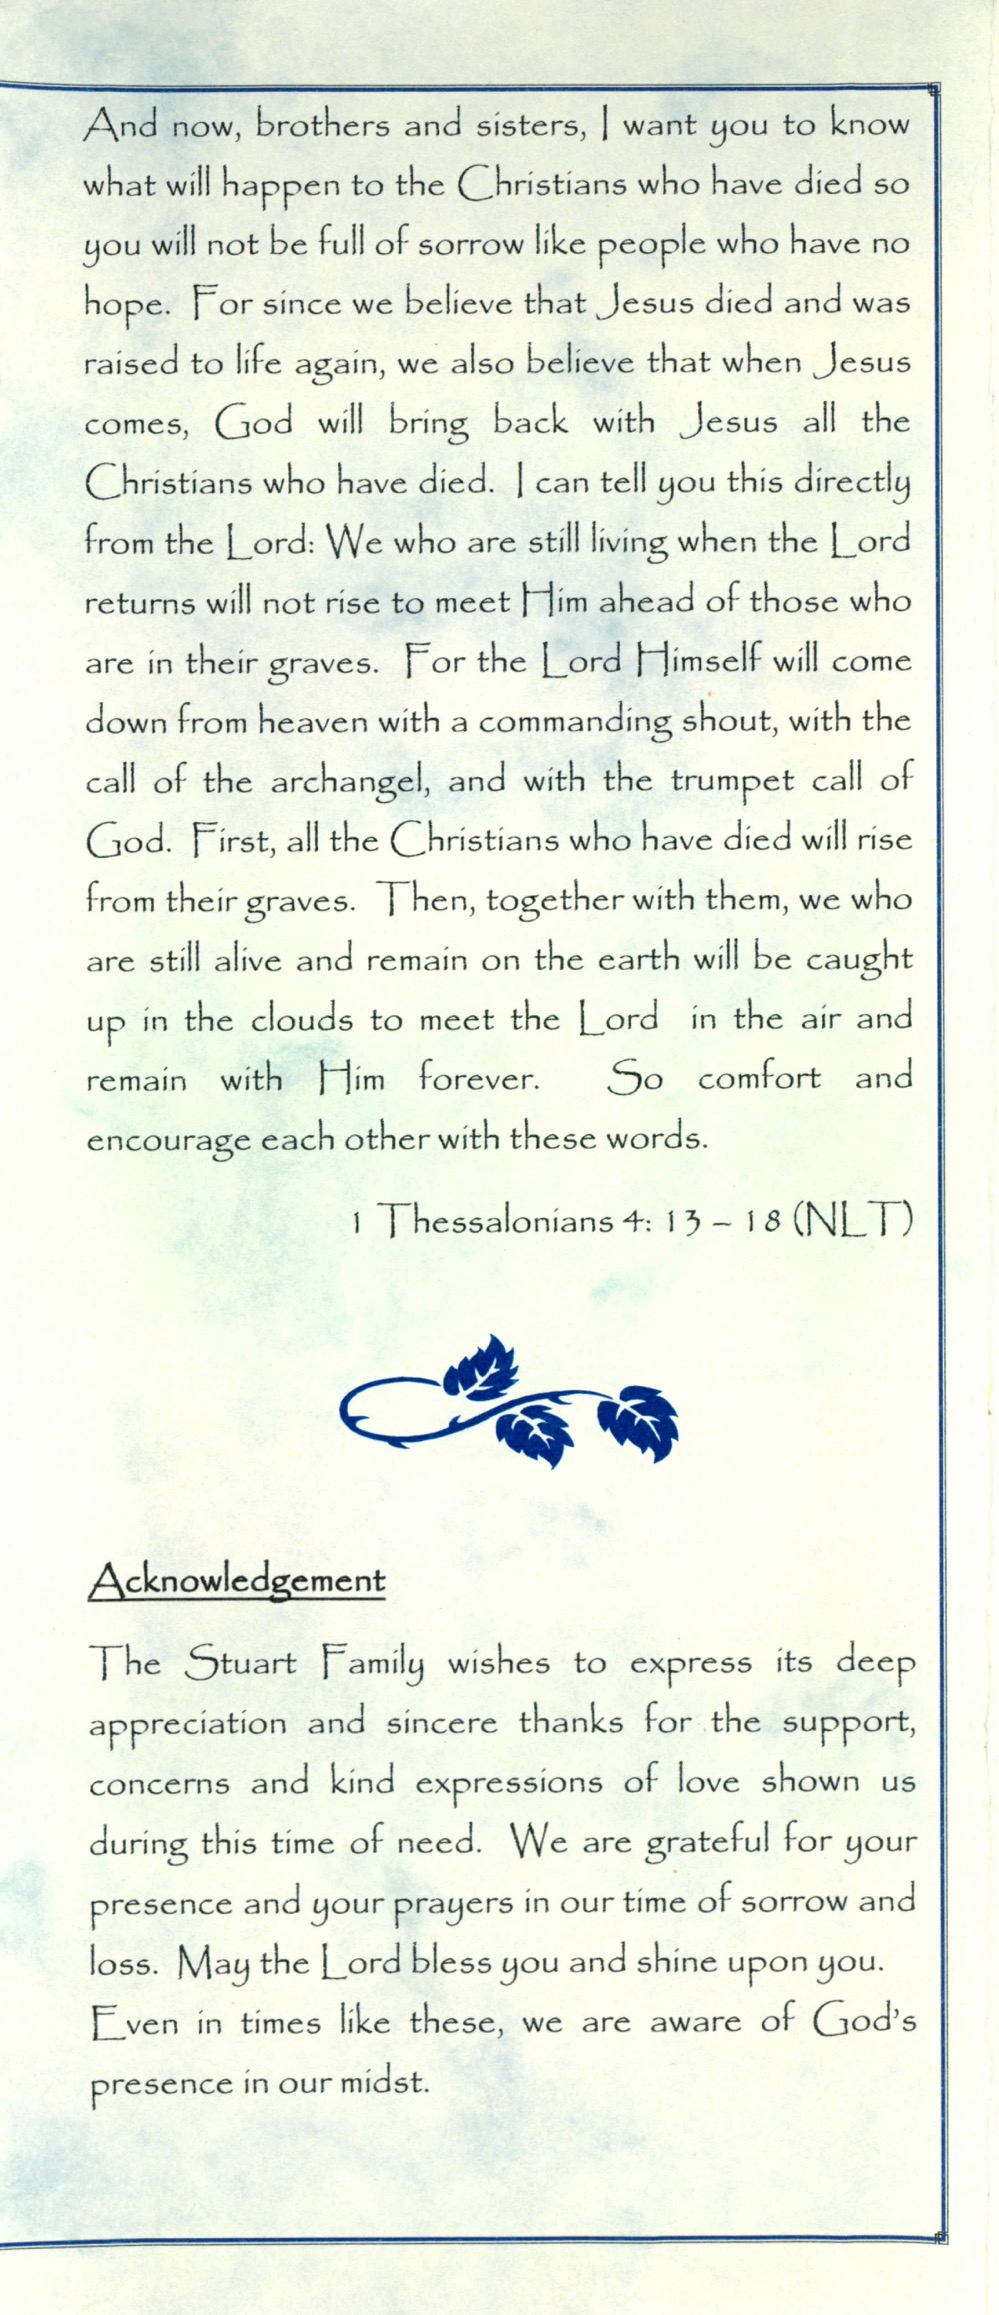 And now, brothers and sisters, I want you to know
what will happen to the Christians who have died so
you will not be full of sorrow like people who have no
hope. For since we believe that Jesus died and was
raised to life again, we also believe that when Jesus
comes, God will bring back with Jesus all the
Christians who have died. I can tell you this directly
from the Lord: We who are still living when the Lord
returns will not rise to meet Him ahead of those who
are in their graves. For the Lord Himself will come
down from heaven with a commanding shout, with the
call of the archangel, and with the trumpet call of
God. First, all the Christians who have died will rise
from their graves. Then, together with them, we who
are still alive and remain on the earth will be caught
up in the clouds to meet the Lord in the air and
remain with Him forever. So comfort and
encourage each other with these words.
1 Thessalonians 4: 13 – 18 (NLT)
Acknowledgement
The Stuart Family wishes to express its deep
appreciation and sincere thanks for the support,
concerns and kind expressions of love shown us
during this time of need. We are grateful for your
presence and your prayers in our time of sorrow and
loss. May the Lord bless you and shine upon you.
Even in times like these, we are aware of God's
presence in our midst.